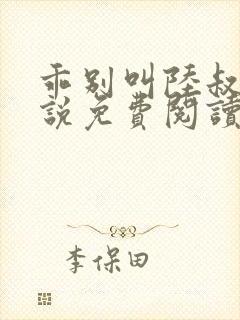 乖别叫陸叔
說免費閱讀
李保田